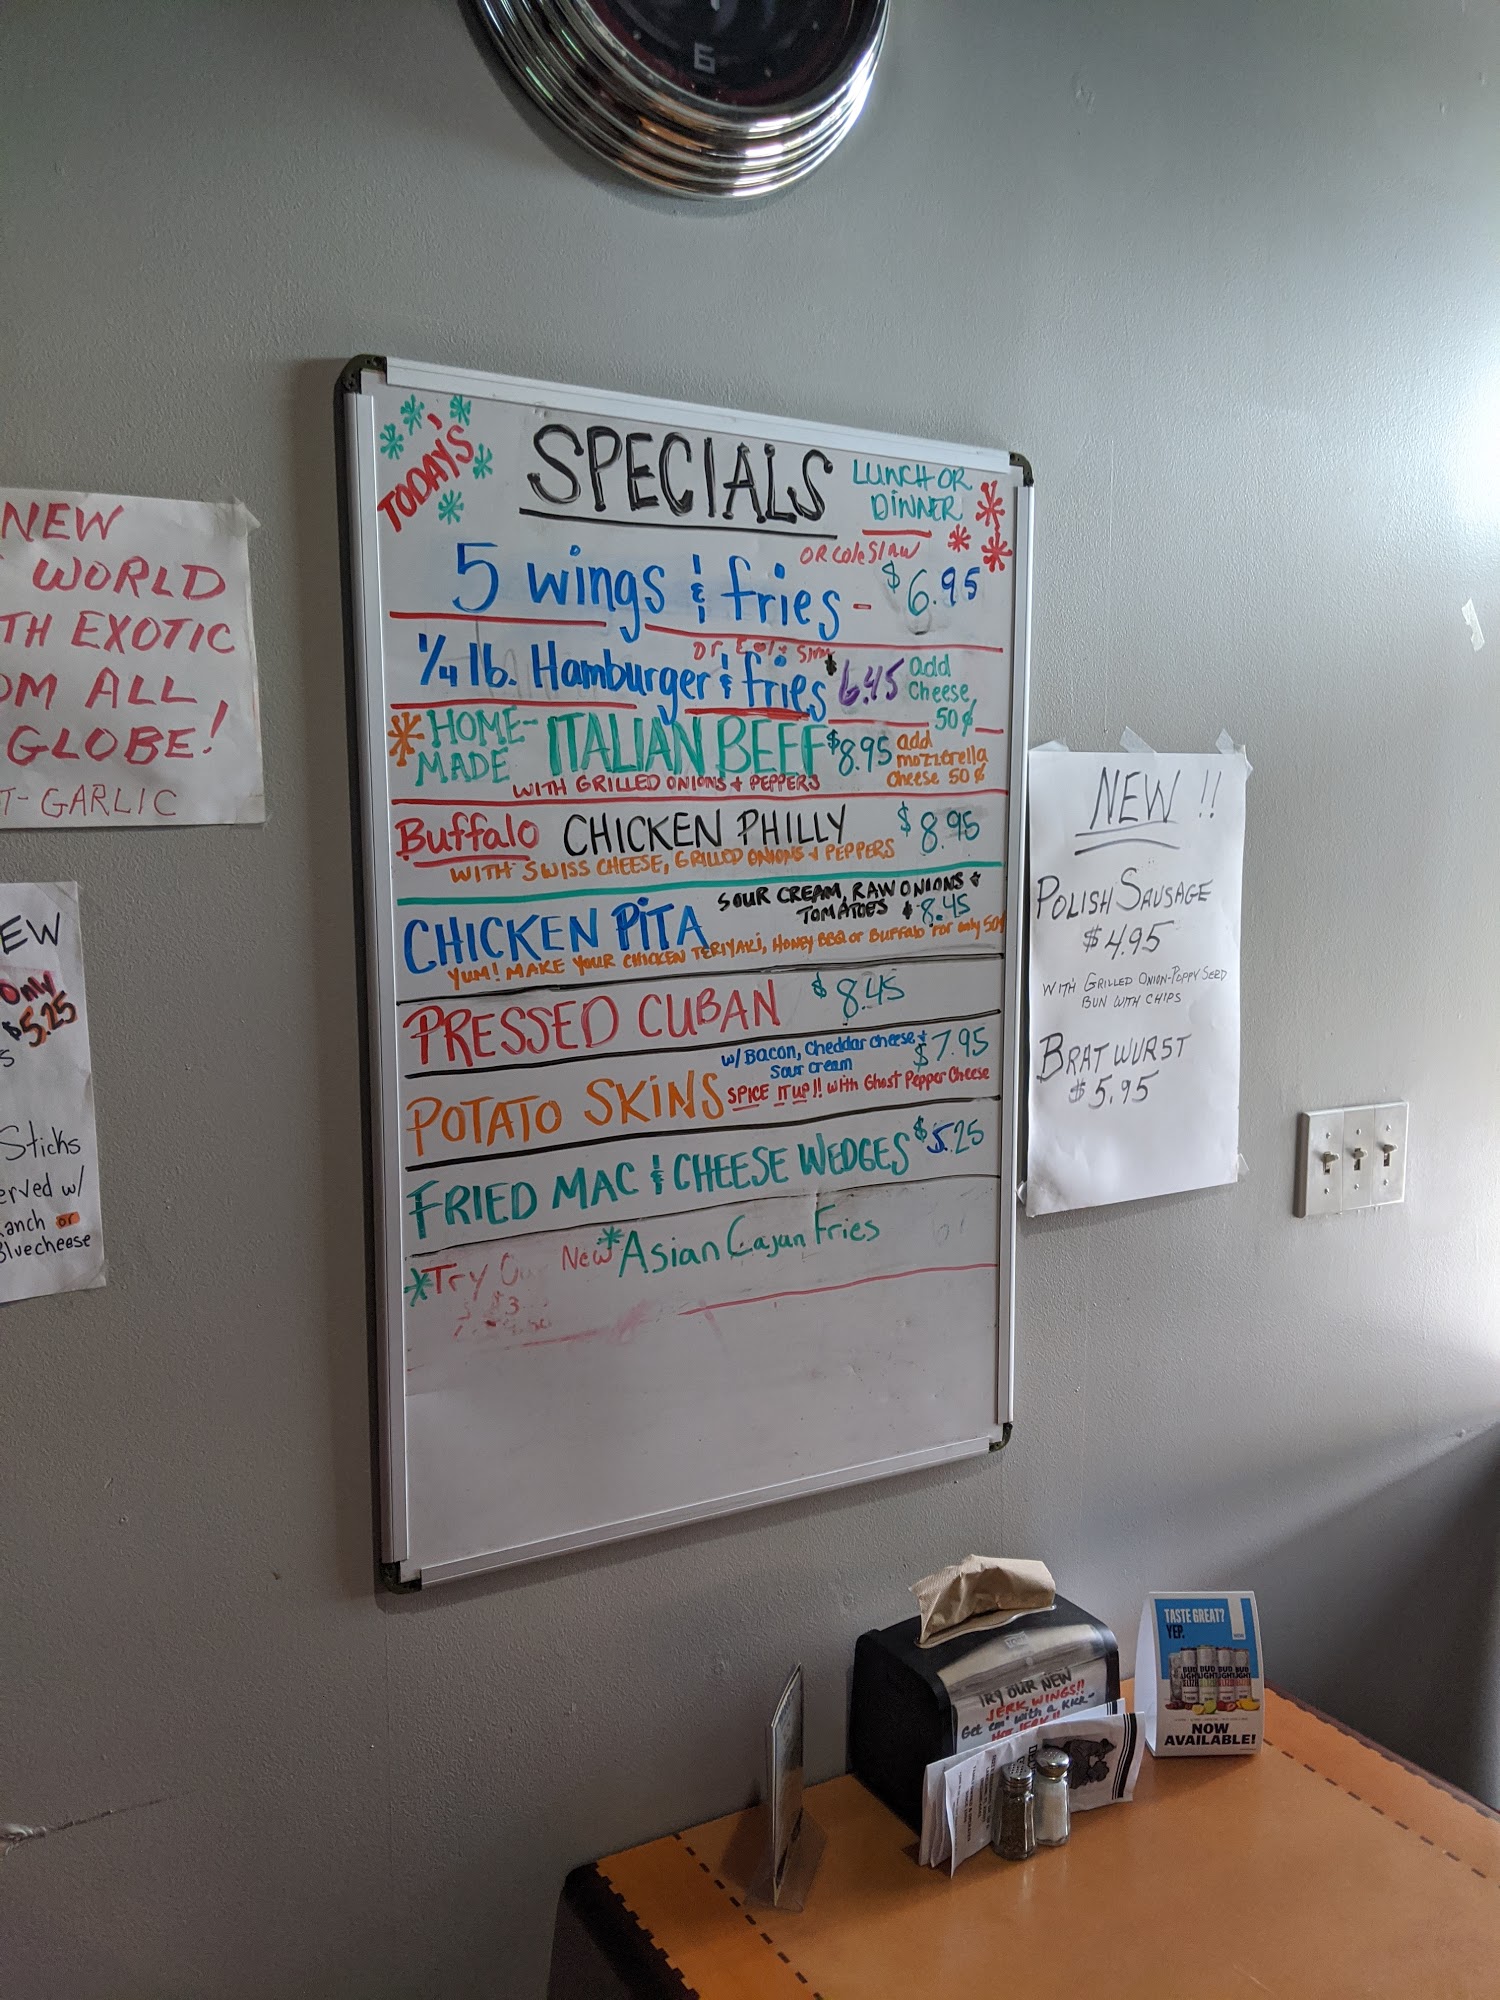 6
TODAY'S
SPECIALS
LUNCH OR
DINNER
OR Cole Slaw
5 wings & fries - $6.95
or Cole Slaw
1/4 lb. Hamburger & fries $6.45 add
Cheese
50¢
HOME-
MADE
ITALIAN BEEF $8.95 add
mozzerella
cheese 50¢
WITH GRILLED ONIONS & PEPPERS
Buffalo CHICKEN PHILLY $8.95
WITH SWISS CHEESE, GRILLED ONIONS & PEPPERS
CHICKEN PITA
SOUR CREAM, RAW ONIONS &
TOMATOES $8.45
YUM! MAKE YOUR CHICKEN TERIYAKI, HONEY BBQ or BUFFALO for only 50¢
PRESSED CUBAN $8.45
POTATO SKINS
w/ Bacon, Cheddar cheese &
Sour cream
$7.95
SPICE IT UP!! with Ghost Pepper Cheese
FRIED MAC & CHEESE WEDGES $5.25
Try
New Asian Cajun Fries
NEW
WORLD
TH EXOTIC
OM ALL
GLOBE!
T-GARLIC
EW
Only
$5.25
s
Sticks
erved w/
anch or
Bluecheese
NEW!!
POLISH SAUSAGE
$4.95
WITH GRILLED ONION-POPPY SEED
BUN WITH CHIPS
BRATWURST
$5.95
TRY OUR NEW
JERK WINGS!!
Get em' with a KICK-
TASTE GREAT?
YEP.
BUD
LIGHT
NOW
AVAILABLE!